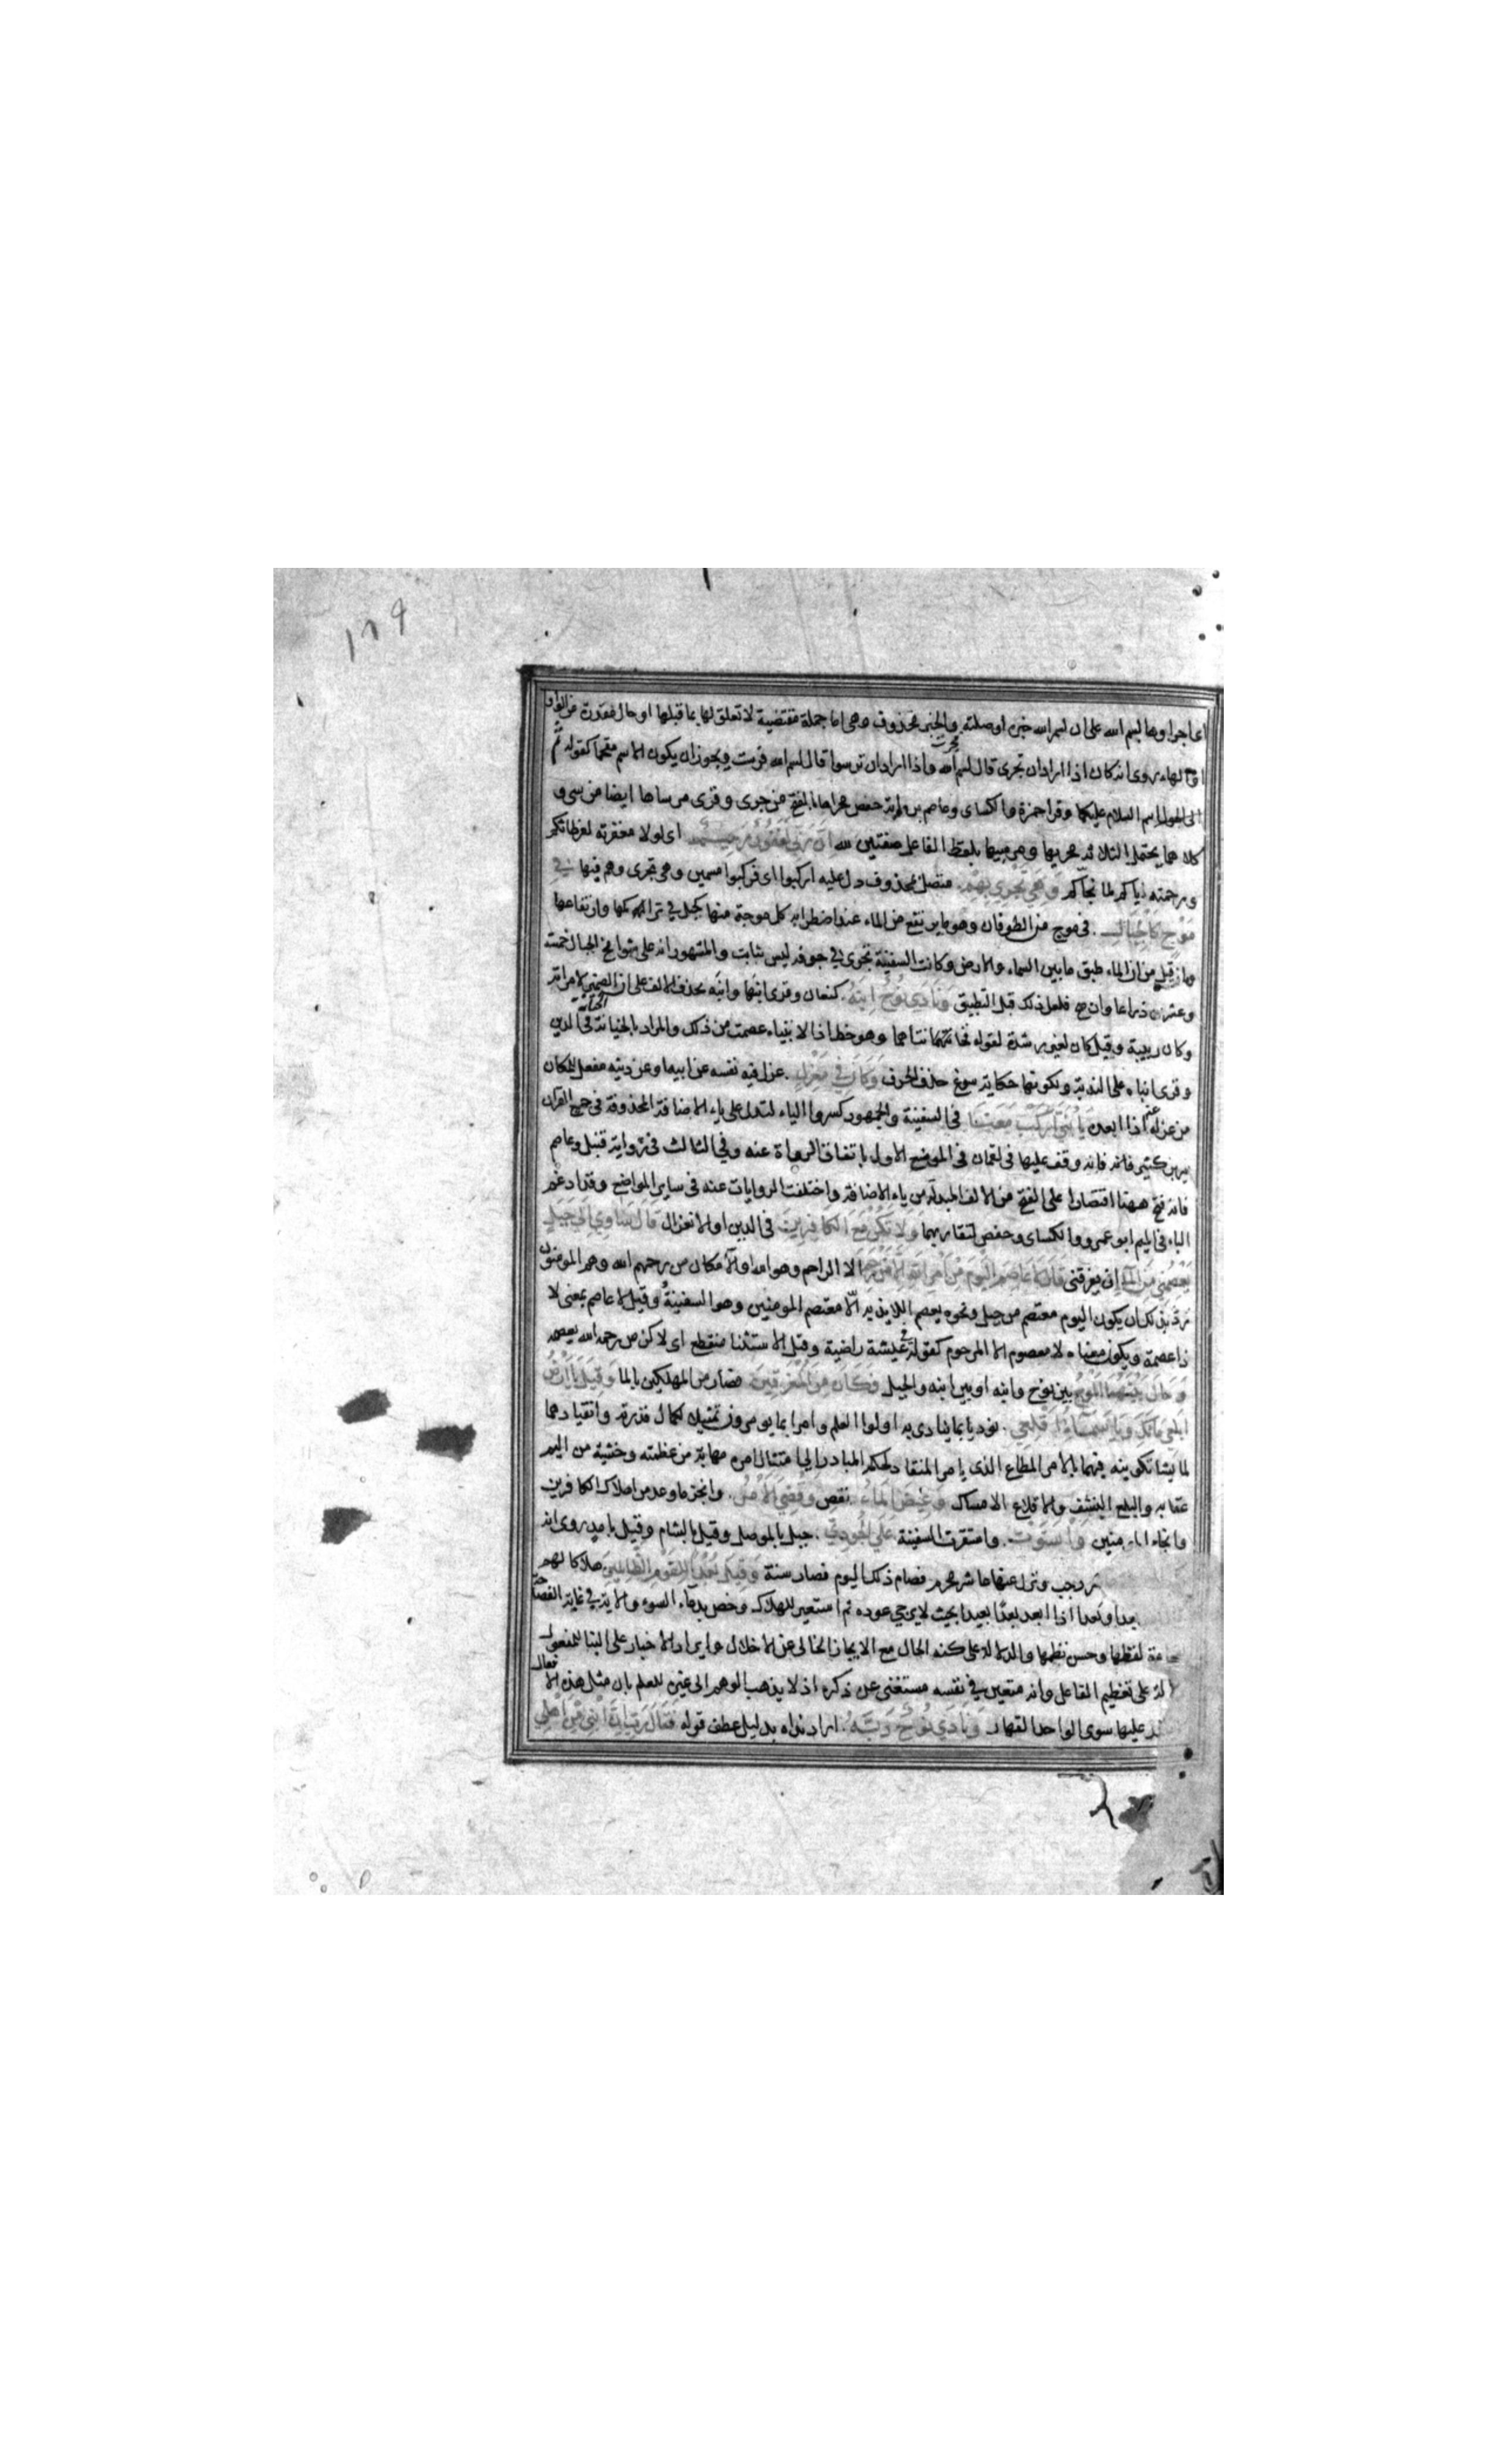 ١٨٩
اى اجراوها بسم الله على ان بسم الله خبره اوصلته والخبر محذوف وهى اما جملة مقتضية لا تعلق لها بما قبلها او حال مقدرة من الواو
او الهاء روى انه كان اذا اراد ان تجرى قال بسم الله فجرت واذا اراد ان ترسوا قال بسم الله فرست ويجوز ان يكون الاسم مقحما كقوله ثم
الى الحول اسم السلام عليكما وقرا حمزة والكساى وعاصم برواية حفص مجراها بالفتح من جرى وقرى مرساها ايضا من رسى و
كلاهما يحتمل الثلاثة ومجريها ومرسيها بلفظ الفاعل صفتين لله ان ربى لغفور رحيم اى لولا مغفرته لفرطاتكم
ورحمته اياكم لما نجاكم وهي تجري بهم متصل بمحذوف دل عليه اركبوا اى فركبوا مسمين وهى تجرى وهم فيها في
موج كالجبال فى موج من الطوفان وهو ما يرتفع من الماء عند اضطرابه كل موجة منها كجبل في تراكمها وارتفاعها
وما قيل من ان الماء طبق ما بين السماء والارض وكانت السفينة تجرى في جوفه ليس بثابت والمشهور انه على شوامخ الجبال خمسة
وعشرين ذراعا وان صح فلعل ذلك قبل التطبيق ونادي نوح ابنه كنعان وقرى ابنها وابنه بحذف الالف على ان الضمير لامراته
وكان ربيبه وقيل كان لغير رشدة لقوله فخانتاهما وهو خطا اذ الانبياء عصمت من ذلك والمراد بالخيانة الخيانة فى الدين
وقرى ابناه على الندبة ولكونها حكاية سوغ حذف الحرف وكان في معزل عزل فيه نفسه عن ابيه او عن دينه مفعل للمكان
من عزله عنه اذا ابعده يا بني اركب معنا فى السفينة والجمهور كسروا الياء لتدل على ياء الاضافة المحذوفة فى جميع القران
غير ابن كثير فانه وقف عليها فى لقمان فى الموضع الاول باتفاق الرواة عنه وفي الثالث فى رواية قنبل وعاصم
فانه فتح ههنا اقتصارا على الفتح من الالف المبدلة من ياء الاضافة واختلفت الروايات عنه فى ساير المواضع وقد ادغم
الباء فى الميم ابو عمرو والكساى وحفص لتقاربهما ولا تكن مع الكافرين فى الدين او الانعزال قال ساوي الي جبل
يعصمني من الماء ان يغرقنى قال لا عاصم اليوم من امر الله الا من رحم الا الراحم وهو الله او الا مكان من رحمهم الله وهم المومنون
رد بذلك ان يكون اليوم معتصم من جبل ونحوه يعصم اللايذ به الا معتصم المومنين وهو السفينة وقيل لا عاصم بمعنى لا
ذا عصمة ويكون معناه لا معصوم الا المرحوم كقوله في عيشة راضية وقيل الاستثنا منقطع اى لاكن من رحمه الله يعصمه
وحال بينهما الموج بين نوح وابنه او بين ابنه والجبل فكان من المغرقين فصار من المهلكين بالما وقيل يا ارض
ابلعي ماءك ويا سماء اقلعي نوديا بما ينادى به اولوا العلم وامرا بما يومرون تمثيلا لكمال قدرته وانقيادهما
لما يشا تكوينه فيهما بالامر المطاع الذى يامر المنقاد لحكمه المبادر الى امتثال امره مهابة من عظمته وخشية من اليم
عقابه والبلع النشف والاقلاع الامساك وغيض الماء نقص وقضي الامر وانجز ما وعد من اهلاك الكافرين
وانجاء المومنين واستوت واستقرت السفينة علي الجودي جبل بالموصل وقيل بالشام وقيل بامد روى انه
رجب ونزل عنها عاشر محرم فصام ذلك اليوم فصار سنة وقيل بعدا للقوم الظالمين هلاكا لهم
بعدا وبعدا اذا ابعد بعدا بعيدا بحيث لا يرجى عوده ثم استعير للهلاك وخص بدعاء السوء والاية في غاية الفصاحة
لفظها وحسن نظمها والدلالة على كنه الحال مع الايجاز الخالى عن الاخلال وايراد الاخبار على البنا للمفعول
على تعظيم الفاعل وانه متعين في نفسه مستغنى عن ذكره اذ لا يذهب الوهم الى غيره للعلم بان مثل هذه الافعال
عليها سوى الواحد القهار ونادي نوح ربه اراد نداه بدليل عطف قوله فقال رب ان ابني من اهلي